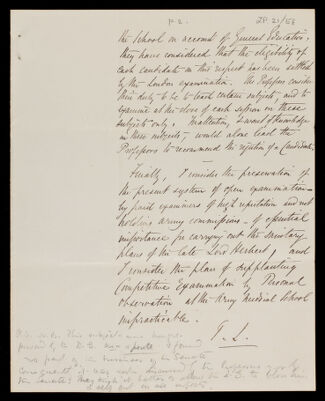 p 2.
JP. 21/58
the School on account of General Education.
They have considered that the eligibility of
each candidate in this respect has been settled
by the London examination. The Professors consider
their duty to be to teach certain subjects, and to
examine at the close of each session on these
subjects only. Inattention, & want of knowledge
in these subjects, would alone lead the
Professors to recommend the rejection of a Candidate.
Finally, I consider the preservation of
the present system of open examination
by paid examiners of high reputation and not
holding army commissions of essential
importance for carrying out the Sanitary
plans of the late Lord Herbert, and
I consider the plan of supplanting
Competitive Examination by Personal
observation at the Army Medical School
impracticable.
T. L.
This subject
by the D. G.
no part of the business of the Senate
the Senate